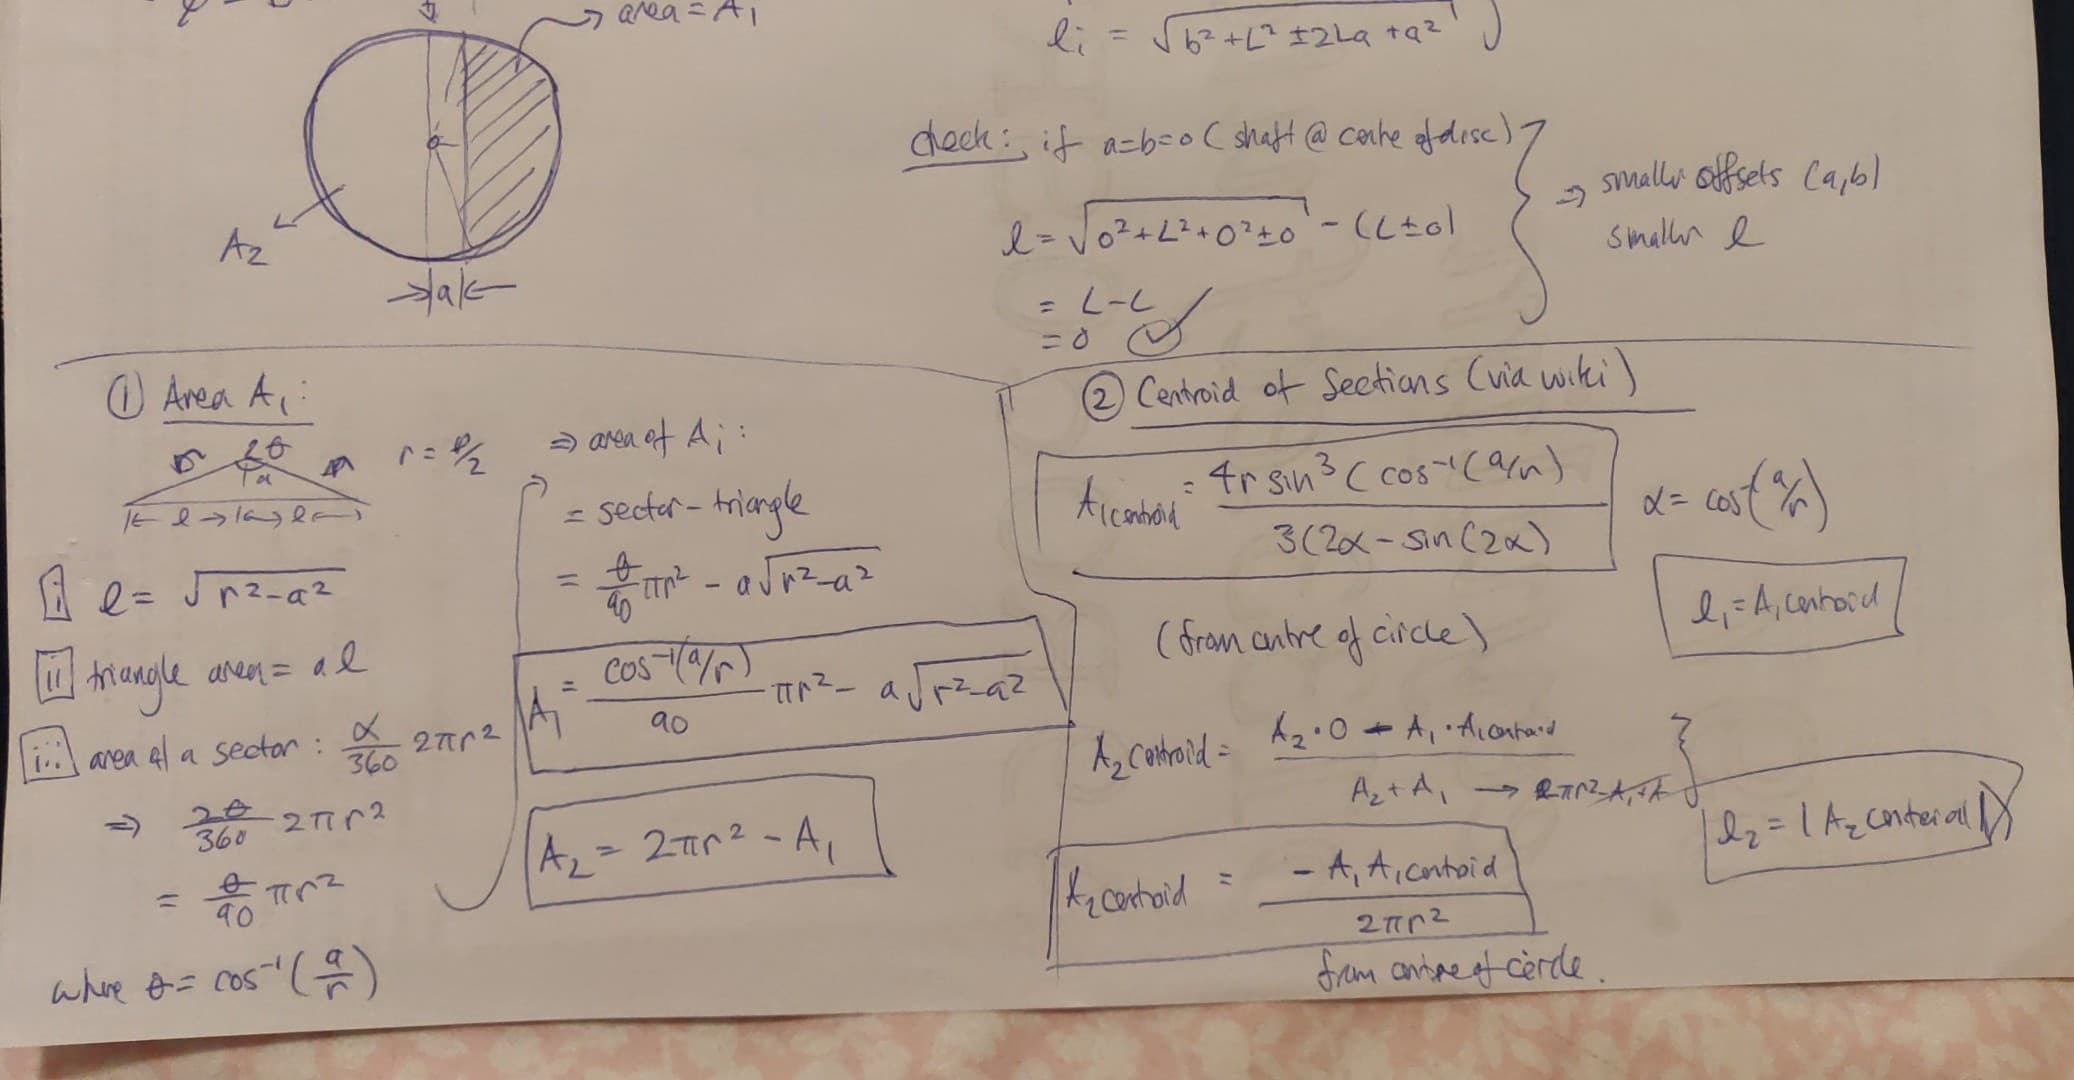 → area = A₁
A₂
→|a|←
lᵢ = √(b² + L² ± 2La + a²)
check: if a=b=0 (shaft @ centre of disc)
l = √(0² + L² + 0² ± 0) - (L ± 0)
= L - L
= 0 ✓
⇒ smaller offsets (a,b)
smaller l
① Area A₁:
2θ
a
|← l →|← l →|
r = D/2
[i] l = √(r²-a²)
[ii] triangle area = al
[iii] area of a sector: α/360 2πr²
⇒ 2θ/360 2πr²
= θ/90 πr²
where θ = cos⁻¹(a/r)
⇒ area of A₁:
= sector - triangle
= θ/90 πr² - a√(r²-a²)
A₁ = cos⁻¹(a/r)/90 πr² - a√(r²-a²)
A₂ = 2πr² - A₁
② Centroid of Sections (via wiki)
A₁centroid = 4r sin³(cos⁻¹(a/r)) / 3(2α - sin(2α)
α = cos⁻(a/r)
l₁ = A₁centroid
(from centre of circle)
A₂centroid = A₂·0 - A₁·A₁centroid / A₂ + A₁ → 2πr²-A₁+A
l₂ = |A₂centeroid|
A₂centroid = -A₁A₁centroid / 2πr²
from centre of circle.